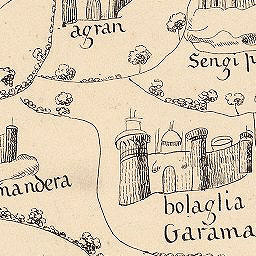 agran
Sengi p
mandera
bolaglia
Garama